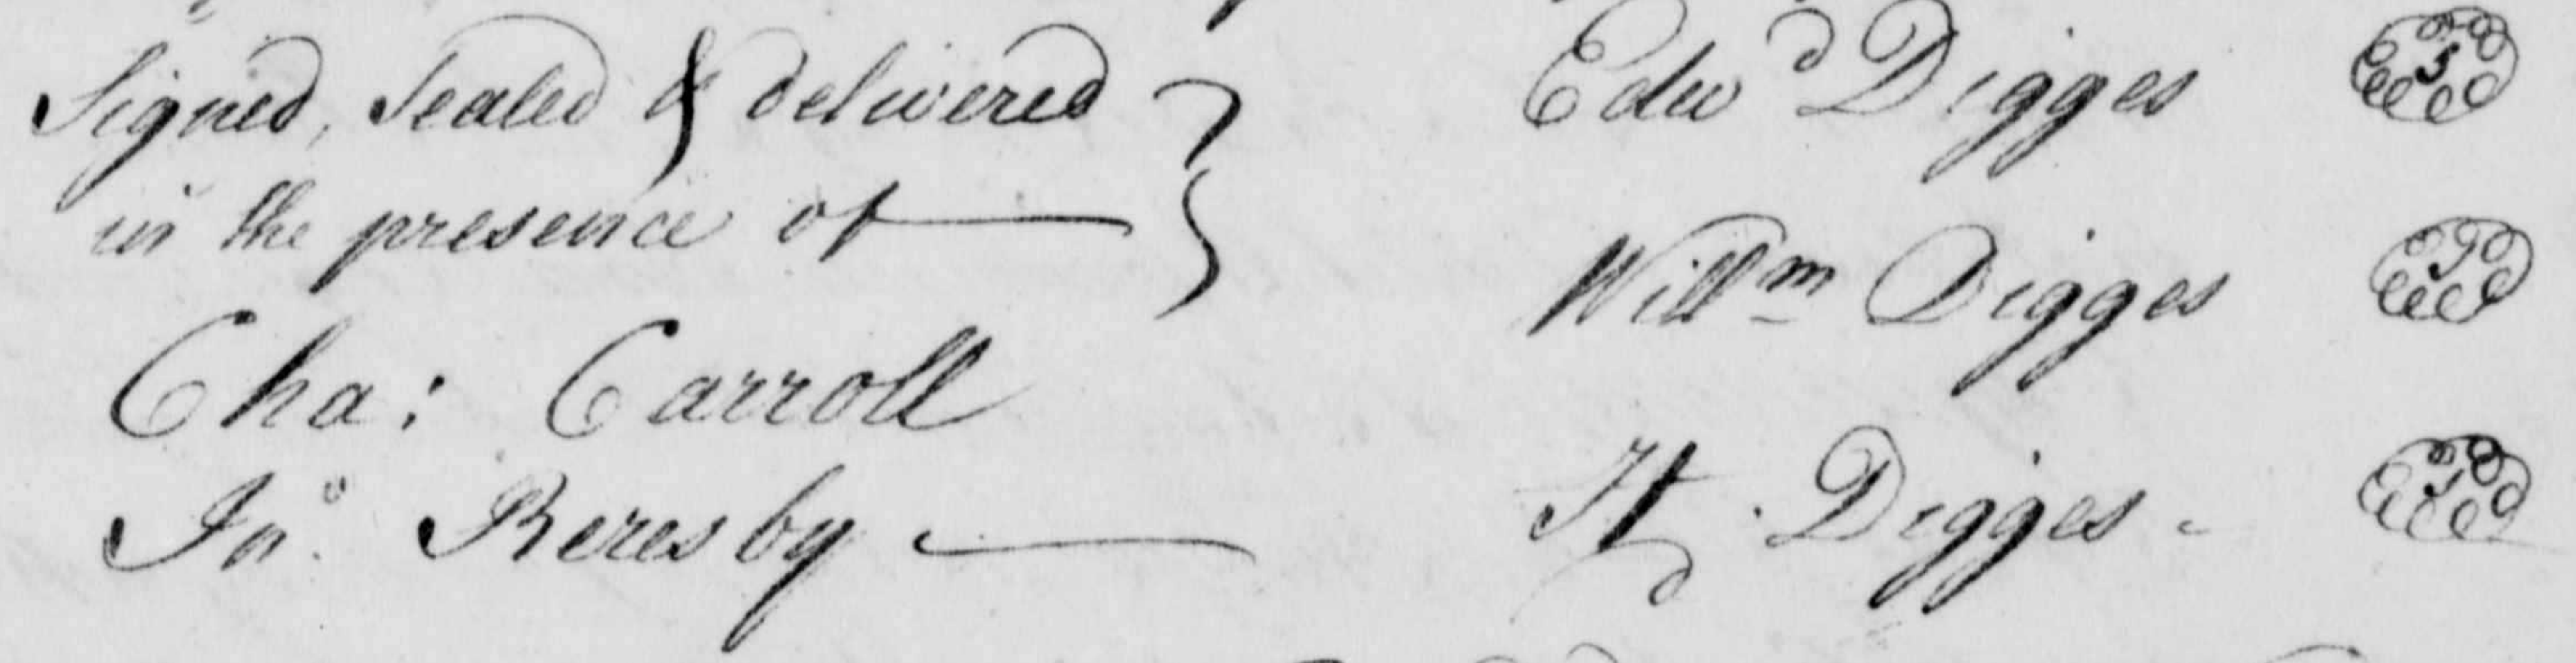 Signed, Sealed & delivered
in the presence of
Cha: Carroll
Jnº. Beresby
Edwd Digges
Willm Digges
H. Digges